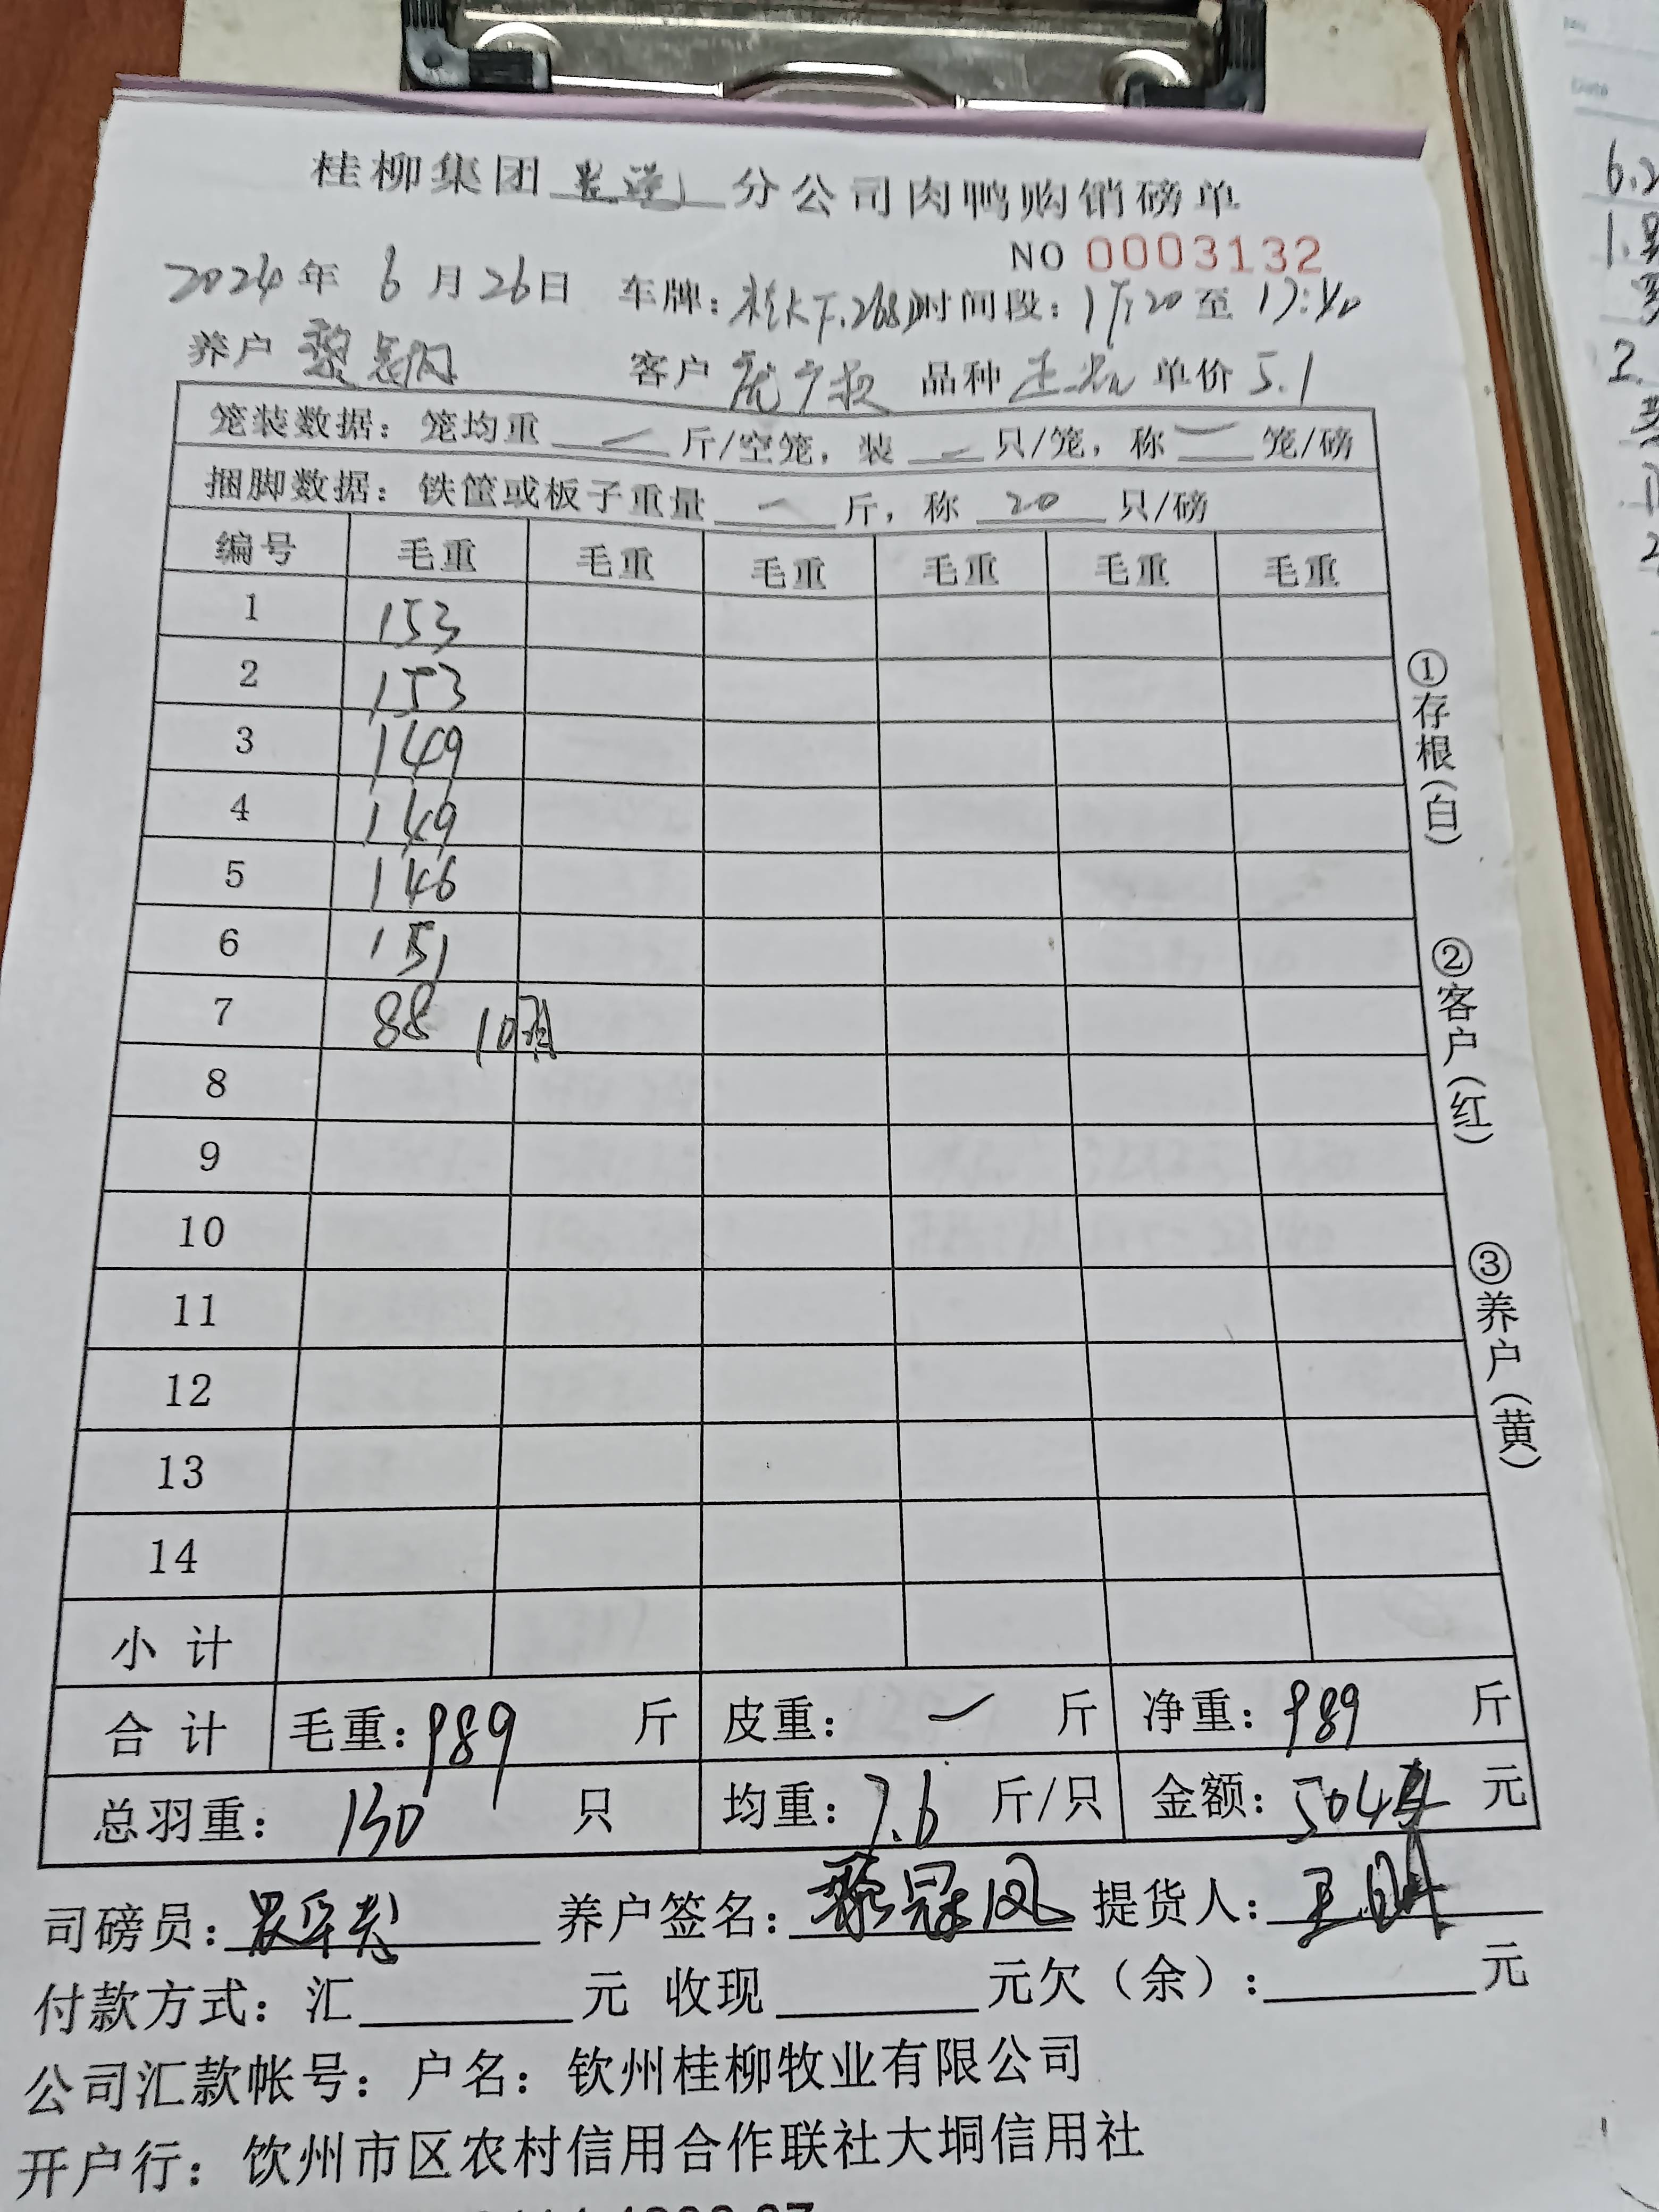 桂柳集团 分公司肉鸭购销磅单
NO 0003132
2024年 6 月 26日 车牌: 时间段: 17:20 至 17:40
养户 黎 客户 庞 品种 单价 5.1
笼装数据: 笼均重 — 斤/空笼, 装 — 只/笼, 称 — 笼/磅
捆脚数据: 铁筐或板子重量 — 斤, 称 20 只/磅
编号 毛重 毛重 毛重 毛重 毛重 毛重
1 153
2 153
3 149
4 149
5 146
6 151
7 88 10
8
9
10
11
12
13
14
小 计
合 计 毛重: 989 斤 皮重: — 斤 净重: 989 斤
总羽重: 130 只 均重: 7.6 斤/只 金额: 504 元
司磅员: 养户签名: 黎冠凤 提货人: 王
付款方式: 汇 元 收现 元欠（余）: 元
公司汇款帐号: 户名: 钦州桂柳牧业有限公司
开户行: 钦州市区农村信用合作联社大垌信用社
①存根(白)
②客户(红)
③养户(黄)
Date
6.2
2.